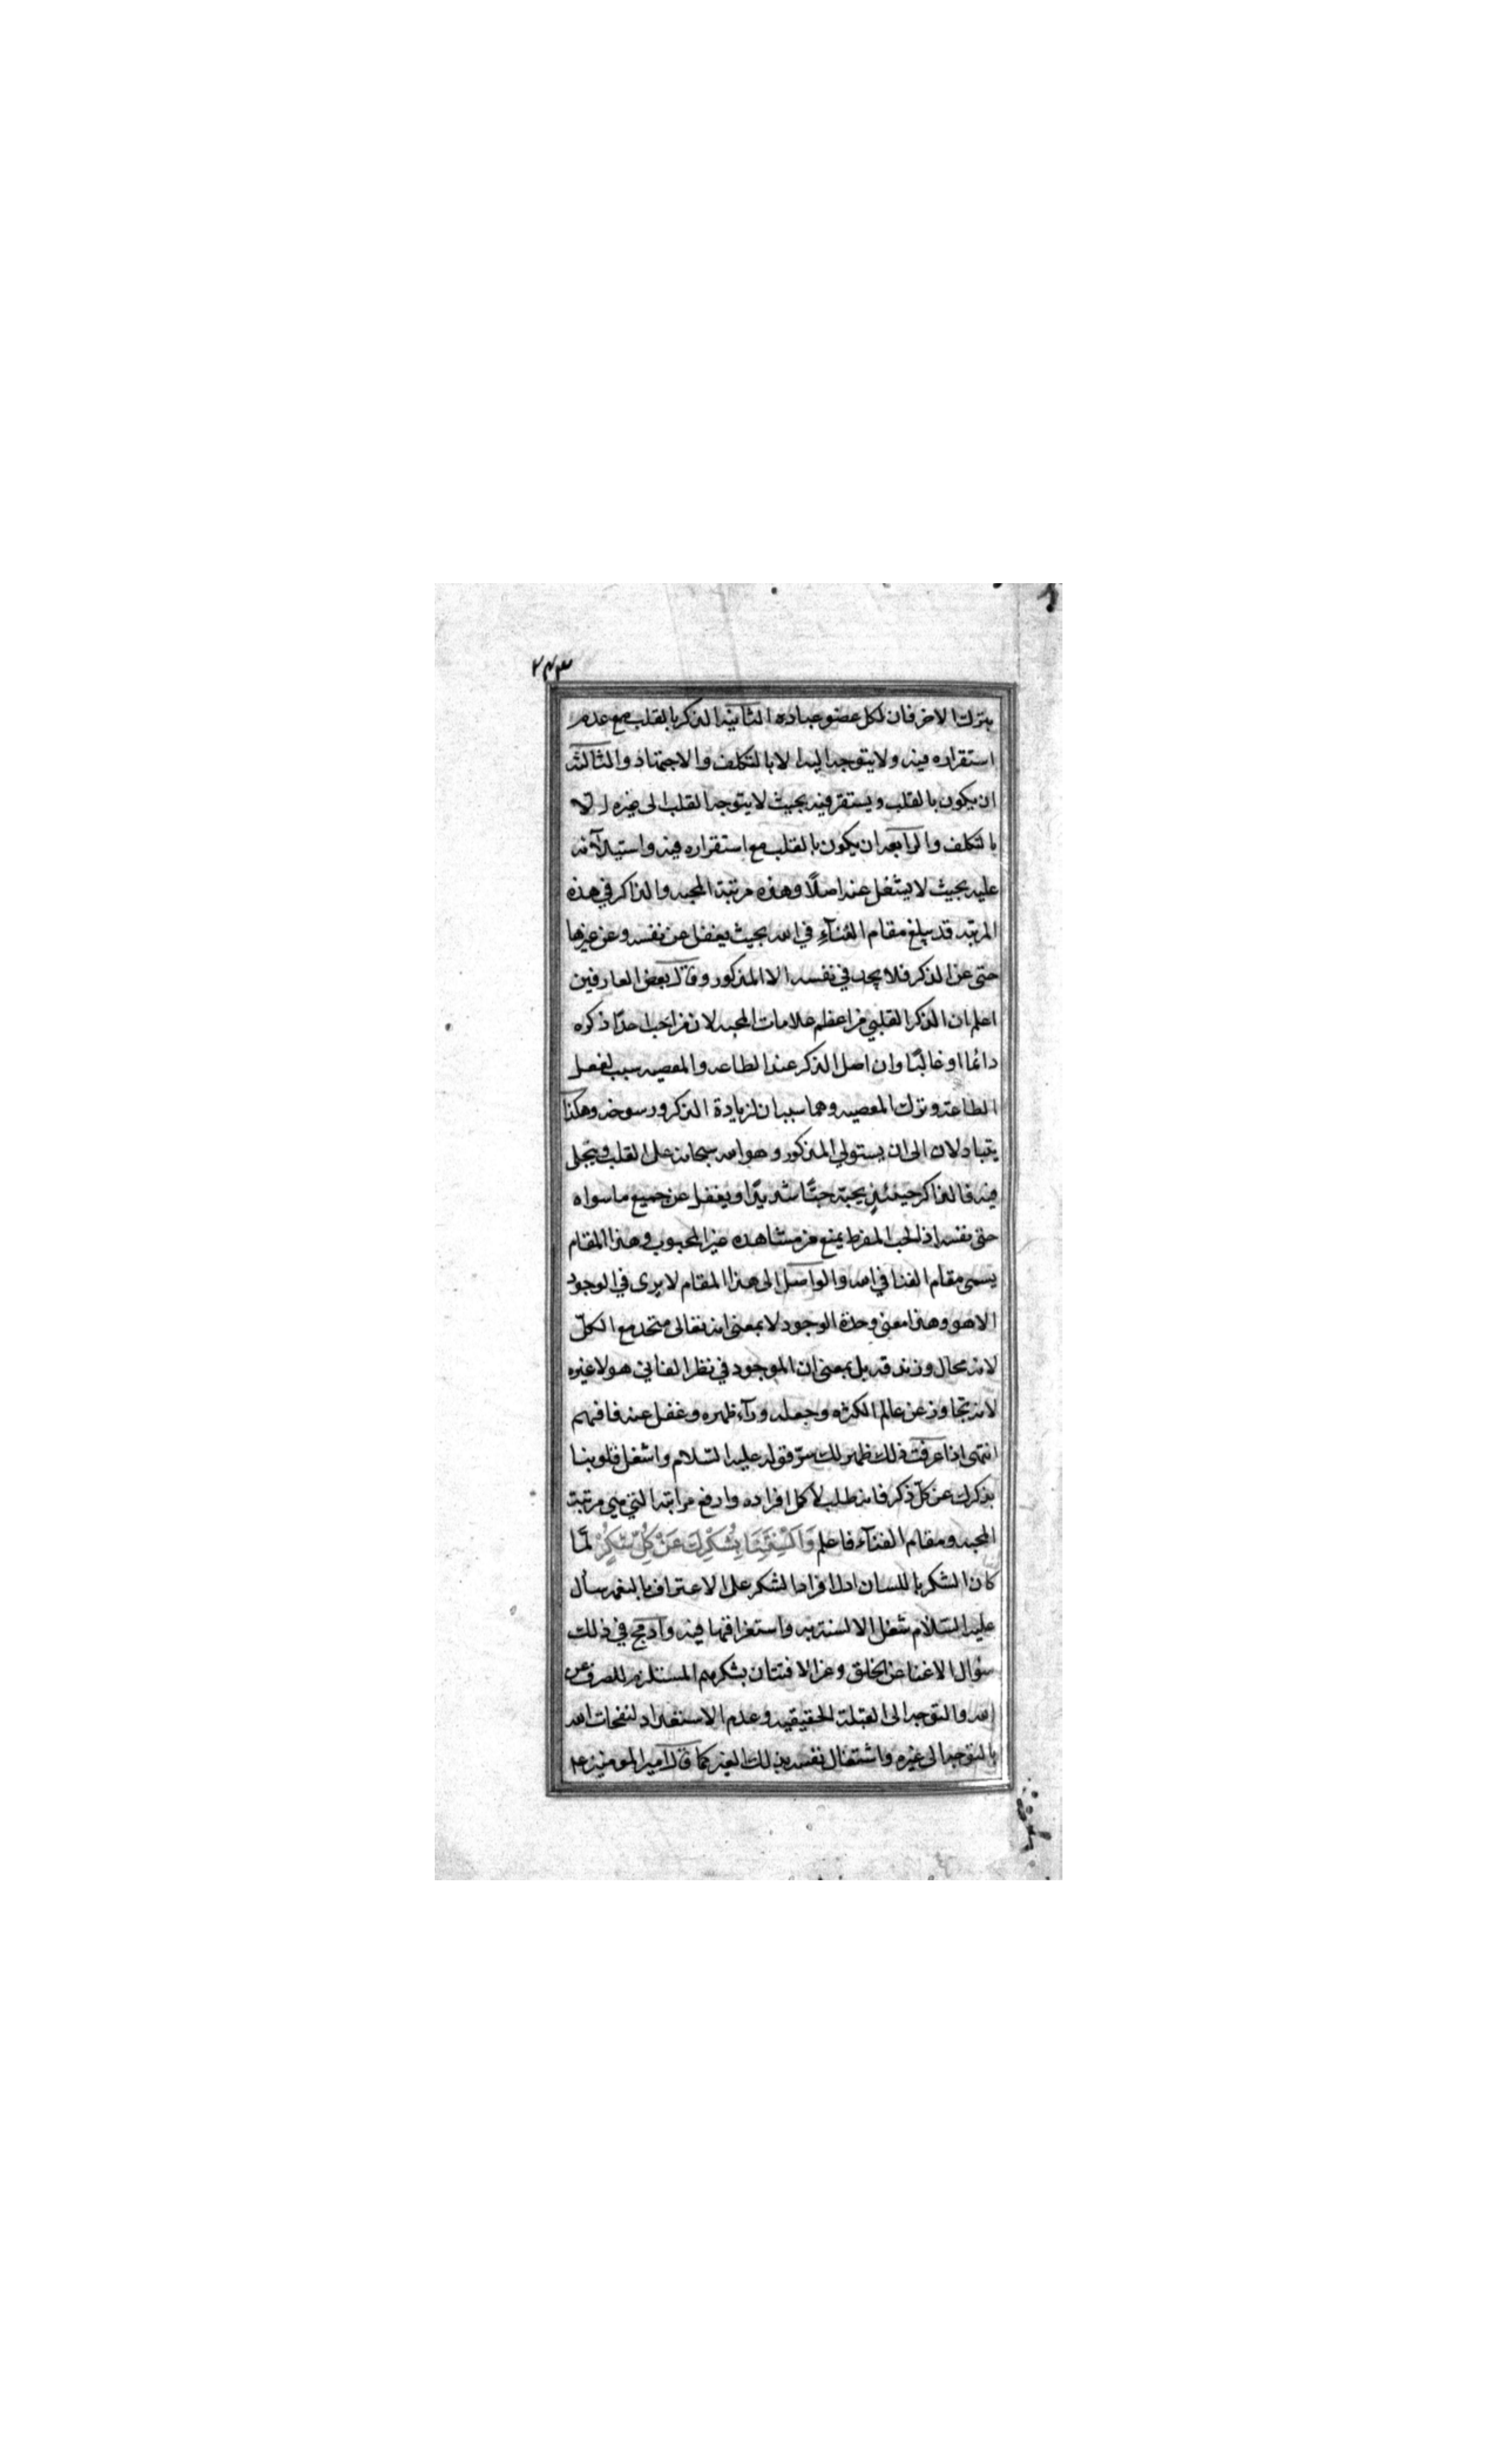 ٢٤٣
بترك الاخر فان لكل عضو عبادة الثانية الذكر بالقلب مع عدم
استقراره فيه ولا يتوجه اليه الا بالتكلف والاجتهاد والثالثة
ان يكون بالقلب ويستقر فيه بحيث لا يتوجه القلب الى غيره الا
بالتكلف والرابعة ان يكون بالقلب مع استقراره فيه واستيلآئه
عليه بحيث لا يشغل عنه اصلًا وهذه مرتبة المحبه والذاكر في هذه
المرتبه قد يبلغ مقام الفنآءِ في الله بحيث يغفل عن نفسه وعن غيرها
حتى عن الذكر فلا يجد في نفسه الا المذكور وقال بعض العارفين
اعلم ان الذكر القلبي من اعظم علامات المحبه لان من احب احدًا ذكره
دائما او غالبًا وان اصل الذكر عند الطاعه والمعصيه سبب لفعل
الطاعة وترك المعصيه وهما سببان لزيادة الذكر ورسوخه وهكذا
يتبادلان الى ان يستولي المذكور وهو الله سبحانه على القلب ويتجلى
فيه فالذاكر حينئذٍ يحبه حبًّا شديدًا ويغفل عن جميع ما سواه
حتى نفسه اذ الحب المفرط يمنع من مشاهده غير المحبوب وهذا المقام
يسمى مقام الفنا في الله والواصل الى هذا المقام لا يرى في الوجود
الا هو وهذا معنى وحدة الوجود لا بمعنى انه تعالى متحد مع الكلّ
لانه محال وزندقه بل بمعنى ان الموجود في نظر الفاني هو لا غيره
لانه تجاوز عن عالم الكثره وجعله ورآء ظهره وغفل عنه فافهم
انتهى اذا عرفت ذلك ظهر لك سرّ قوله عليه السّلام واشغل قلوبنا
بذكرك عن كلّ ذكر فانه طلب لاكل افراده وارفع مراتبه التي هي مرتبة
المحبه ومقام الفنآء فاعلم وَاَلْسِنَتَنَا بِشُكْرِكَ عَنْ كُلِّ شُكْرٍ لمّا
كان الشكر باللسان ادل افراد الشكر على الاعتراف بالنعمه سأل
عليه السّلام شغل الالسنة به واستغراقها فيه وادمج في ذلك
سؤال الاغنا عن الخلق وعن الافتتان بشكرهم المستلزم للصرف عن
الله والتوجه الى القبلة الحقيقيه وعدم الاستعداد لنفحات الله
بالتوجه الى غيره واشتغال نفسه بذلك الغير كما قال امير المومنين ع